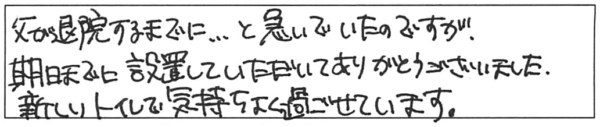 父が退院するまでに…と急いでいたのですが、
期日までに設置していただいてありがとうございました.
新しいトイレで気持ちよく過ごせています。